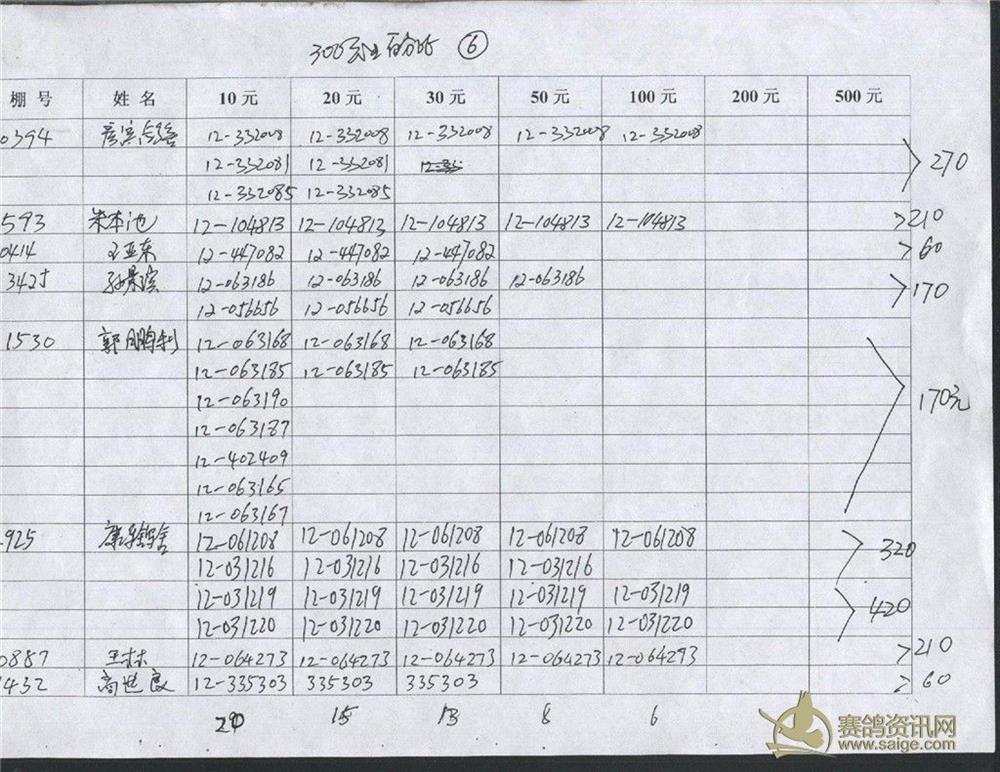 300 百分比 ⑥
棚号 姓名 10元 20元 30元 50元 100元 200元 500元
0394 12-332008 12-332008 12-332008 12-332008 12-332008
12-332081 12-332081 270
12-332085 12-332085
593 朱本池 12-104813 12-104813 12-104813 12-104813 12-104813 >210
0414 王亚东 12-447082 12-447082 12-447082 >60
3425 孙景滨 12-063186 12-063186 12-063186 12-063186 >170
12-056656 12-056656 12-056656
1530 郭鹏利 12-063168 12-063168 12-063168
12-063185 12-063185 12-063185
12-063190 170元
12-063187
12-402409
12-063165
12-063167
925 12-061208 12-061208 12-061208 12-061208 12-061208 320
12-031216 12-031216 12-031216 12-031216
12-031219 12-031219 12-031219 12-031219 12-031219 420
12-031220 12-031220 12-031220 12-031220 12-031220
0887 王林 12-064273 12-064273 12-064273 12-064273 12-064273 >210
1432 高世良 12-335303 335303 335303 >60
20 15 13 8 6
赛鸽资讯网
www.saige.com